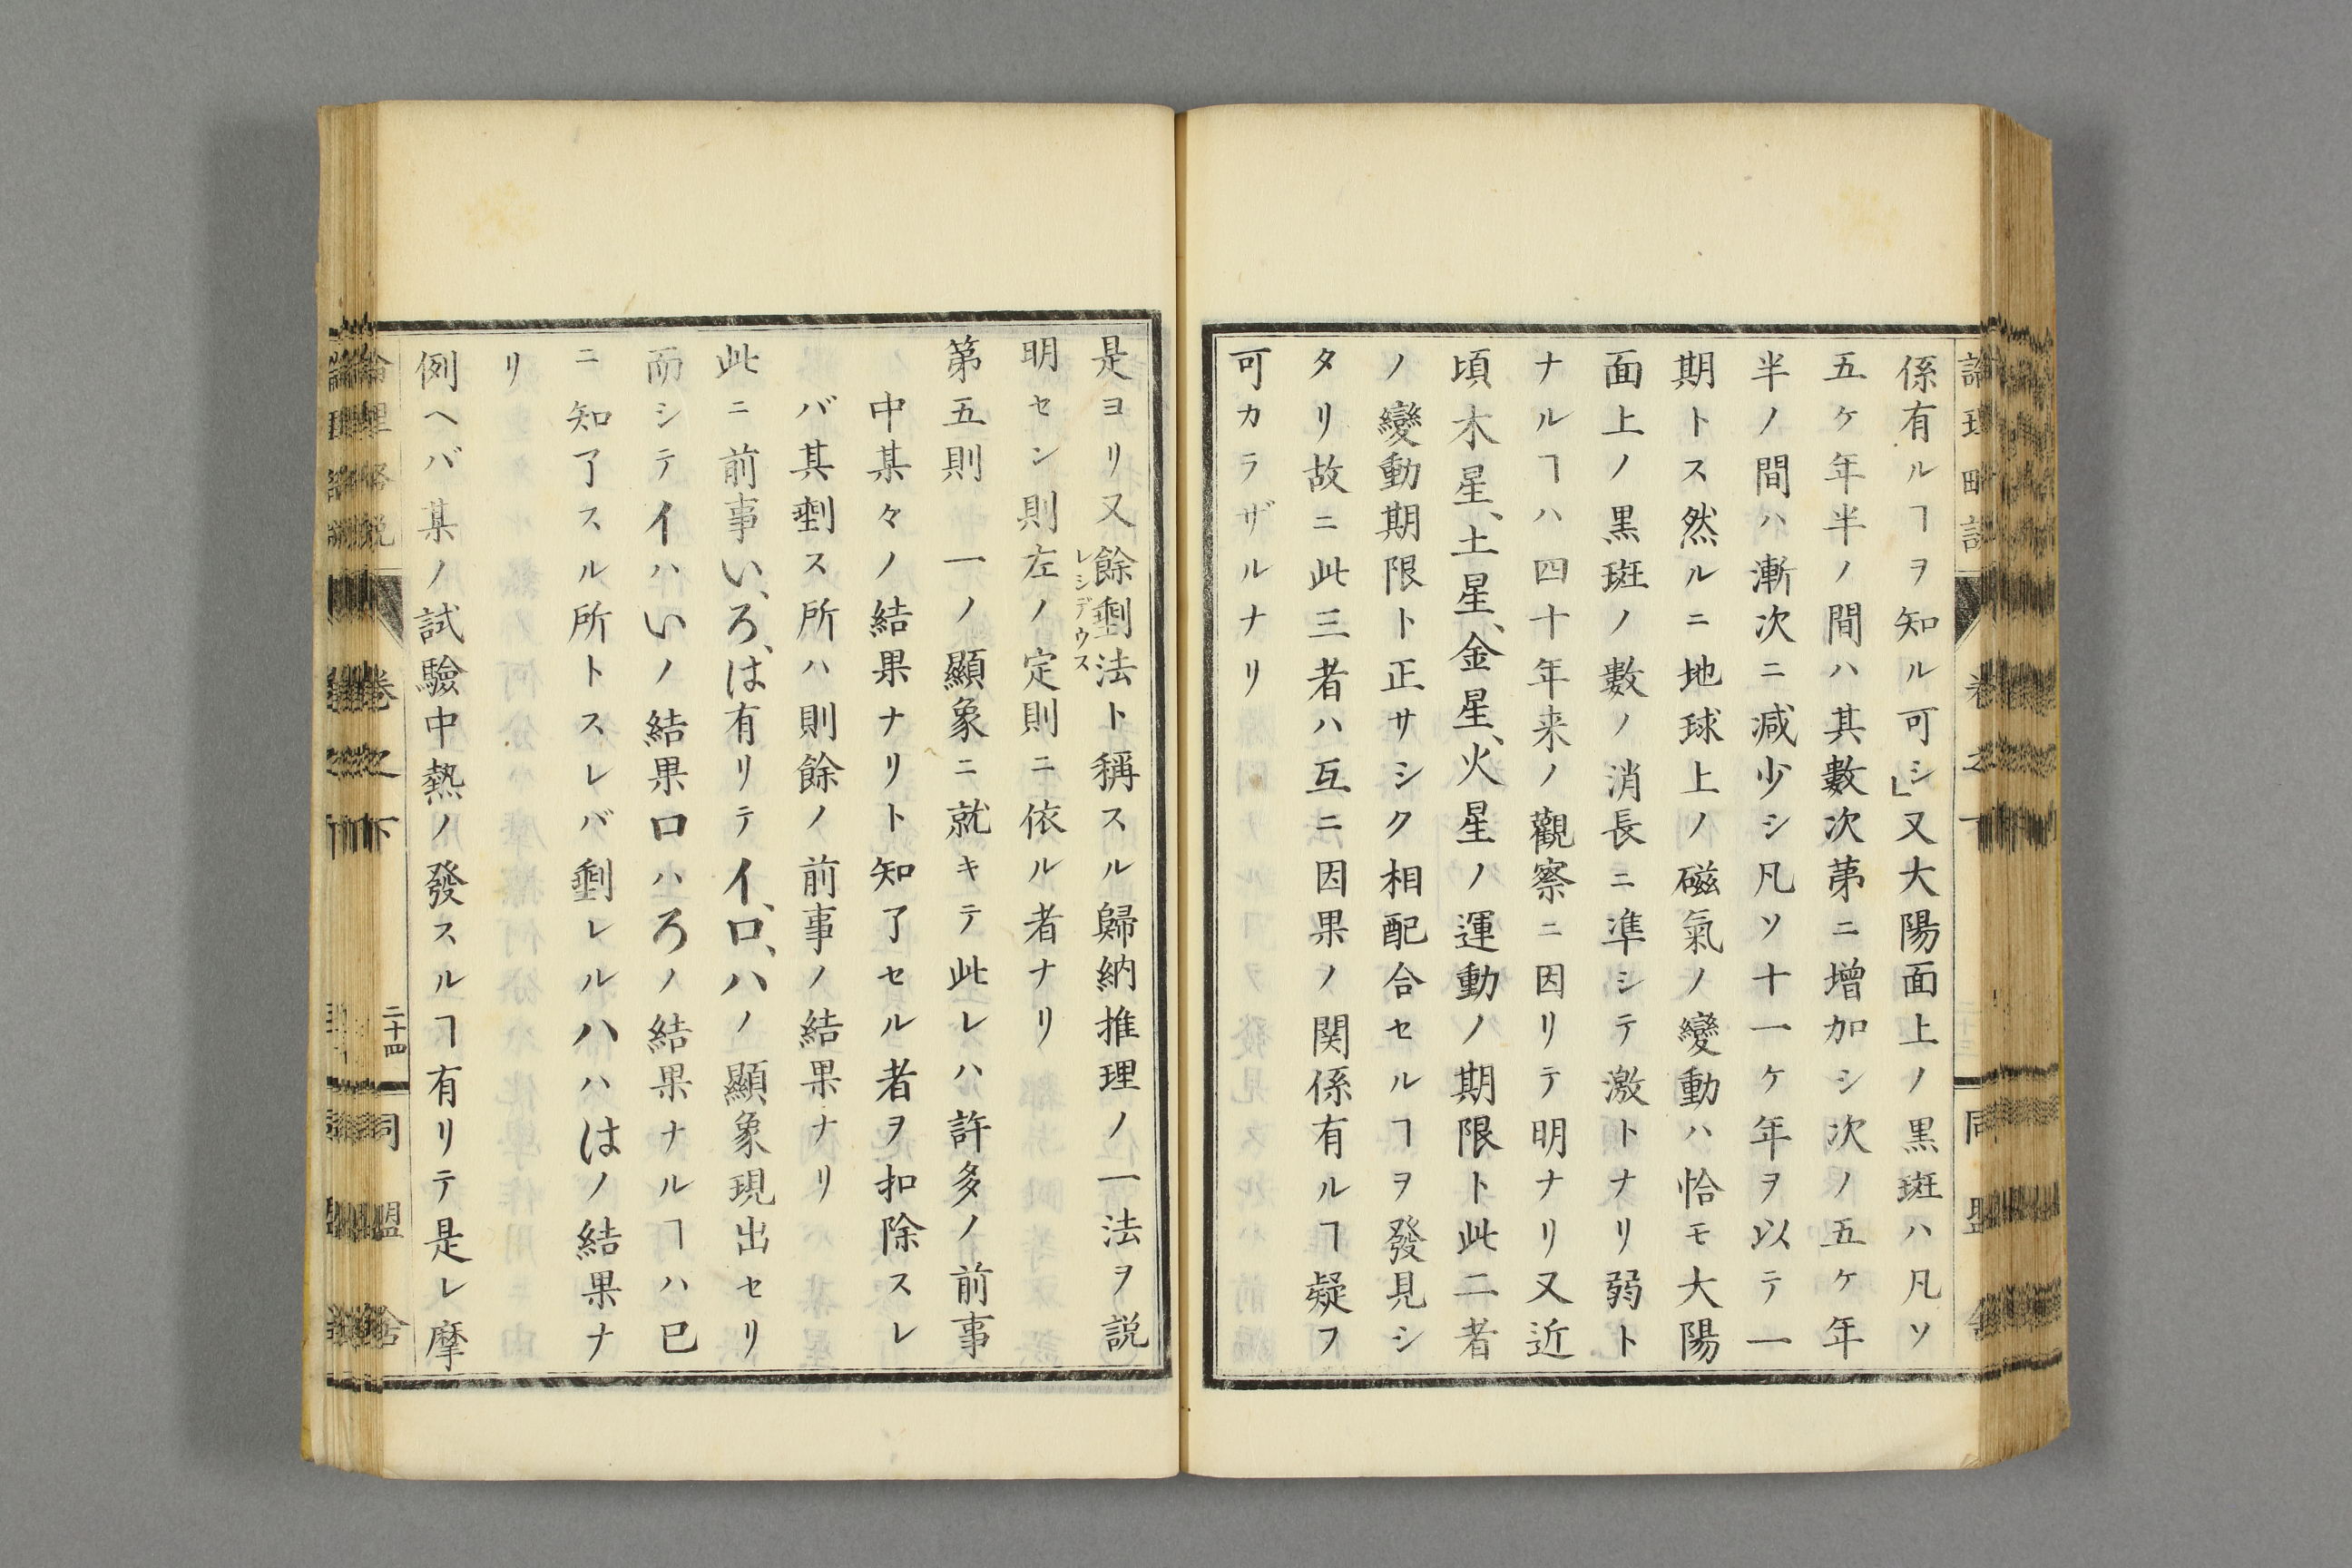 係有ルヿヲ知ル可シ」又大陽面上ノ黒斑ハ凡ソ
五ケ年半ノ間ハ其數次第ニ增加シ次ノ五ケ年
半ノ間ハ漸次ニ減少シ凡ソ十一ケ年ヲ以テ一
期トス然ルニ地球上ノ磁氣ノ變動ハ恰モ大陽
面上ノ黒斑ノ數ノ消長ニ準シテ激トナリ弱ト
ナルヿハ四十年来ノ觀察ニ因リテ明ナリ又近
頃木星、土星、金星、火星ノ運動ノ期限ト此二者
ノ變動期限ト正サシク相配合セルヿヲ發見シ
タリ故ニ此三者ハ互ニ因果ノ関係有ルヿ疑フ
可カラザルナリ
是ヨリ又餘剩法ト稱スル歸納推理ノ一法ヲ説
レシデウス
明セン則左ノ定則ニ依ル者ナリ
第五則 一ノ顯象ニ就キテ此レハ許多ノ前事
中某々ノ結果ナリト知了セル者ヲ扣除スレ
バ其剩ス所ハ則餘ノ前事ノ結果ナリ
此ニ前事い、ろ、は有リテイ、ロ、ハノ顯象現出セリ
而シテイハいノ結果ロハろノ結果ナルヿハ已
ニ知了スル所トスレバ剩レルハハはノ結果ナ
リ
例ヘバ某ノ試驗中熱ノ發スルヿ有リテ是レ摩
論理略説
卷之下
二十四
同盟舍